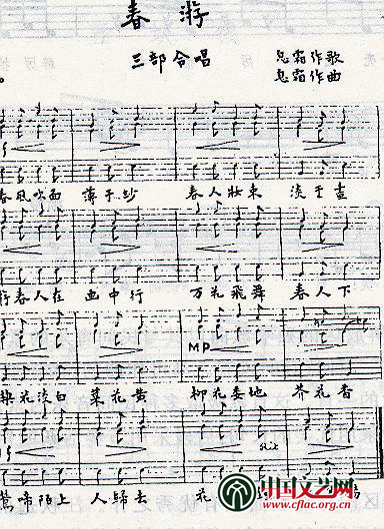 春 游
三部合唱 息霜作歌
息霜作曲
春風吹面 薄于紗 春人妝束 淡于畫
行春人在 畫中行 万花飛舞 春人下
梨花淡白 菜花黄 柳花委地 芥花香
MP
rit
鶯啼陌上 人歸去 花
中国文艺网
www.cflac.org.cn